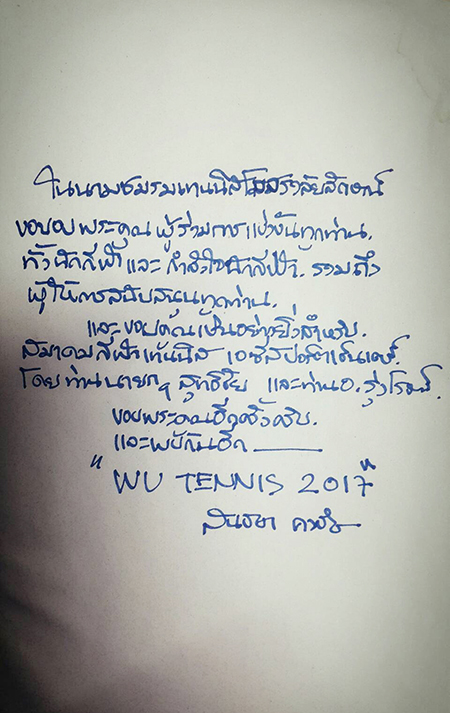 ในนามชมรมเทนนิสวลัยลักษณ์
ขอขอบพระคุณผู้ร่วมการแข่งขันทุกท่าน.
ทั้งนักกีฬาและกำลังใจนักกีฬา. รวมถึง
ผู้ให้การสนับสนุนทุกท่าน.
และขอบคุณเป็นอย่างยิ่งสำหรับ.
สมาคมกีฬาเทนนิส เอซสปอร์ต
โดยท่านนายกฯ สุทธิชัย และท่านอ. รุ่งโรจน์.
ขอบพระคุณอีกครั้งครับ.
และพบกันอีก
"WU TENNIS 2017"
สนธยา